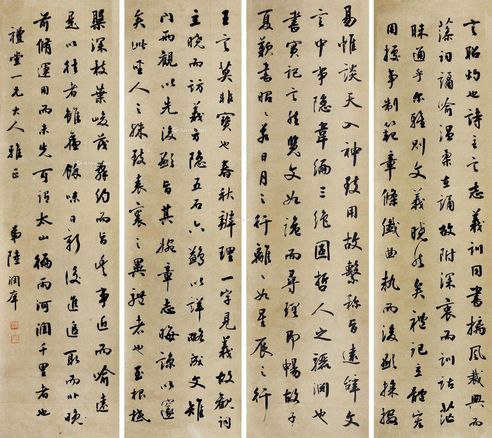 言昭灼也詩主言志詁訓同書摛風裁興而
藻詞譎喻溫柔在誦故附深衷而訓詁茫
昧通乎尔雅則文義曉然矣禮記立體
用據事制範章條纖曲執而後顯採掇
易惟談天入神致用故繫稱旨遠辭文
言中事隱韋編三絕固哲人之驪淵也
書實記言然覽文如詭而尋理即暢故子
夏歎書昭昭若日月之行離如星辰之行
王言莫非寶也春秋辨理一字見義故觀詞
立曉而訪義方隱五石六鷁以詳略成文雉
門兩觀以先後顯旨其婉章志晦諒以邃
矣此聖人之殊致表裏之異體者也至根柢
槃深枝葉峻茂辭約而旨豐事近而喻遠
是以往者雖舊餘味日新後進追取而非晚
前脩運用而未先可謂太山徧雨河潤千里者也
禮堂一兄大人雅正
弟陸潤庠